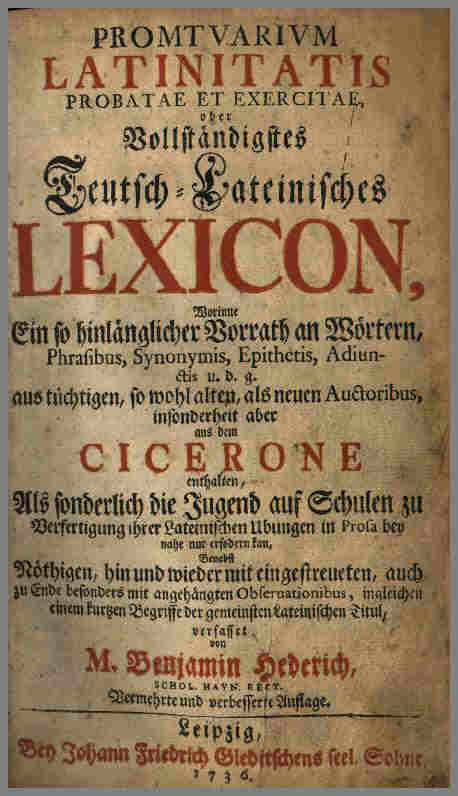 PROMTVARIVM
LATINITATIS
PROBATAE ET EXERCITAE,
oder
Vollständigstes
Teutsch-Lateinisches
LEXICON,
Worinne
Ein so hinlänglicher Vorrath an Wörtern,
Phrasibus, Synonymis, Epithetis, Adiun-
ctis u. d. g.
aus tüchtigen, so wohl alten, als neuen Auctoribus,
insonderheit aber
aus dem
CICERONE
enthalten,
Als sonderlich die Jugend auf Schulen zu
Verfertigung ihrer Lateinischen Ubungen in Prosa bey
nahe nur erfodern kan,
Benebst
Nöthigen, hin und wieder mit eingestreueten, auch
zu Ende besonders mit angehängten Obseruationibus, ingleichen
einem kurtzen Begriffe der gemeinsten Lateinischen Titul,
verfasset
von
M. Benjamin Hederich,
SCHOL. HAYN. RECT.
Vermehrte und verbesserte Auflage.
Leipzig,
Bey Johann Friedrich Gleditschens seel. Sohne,
1736.